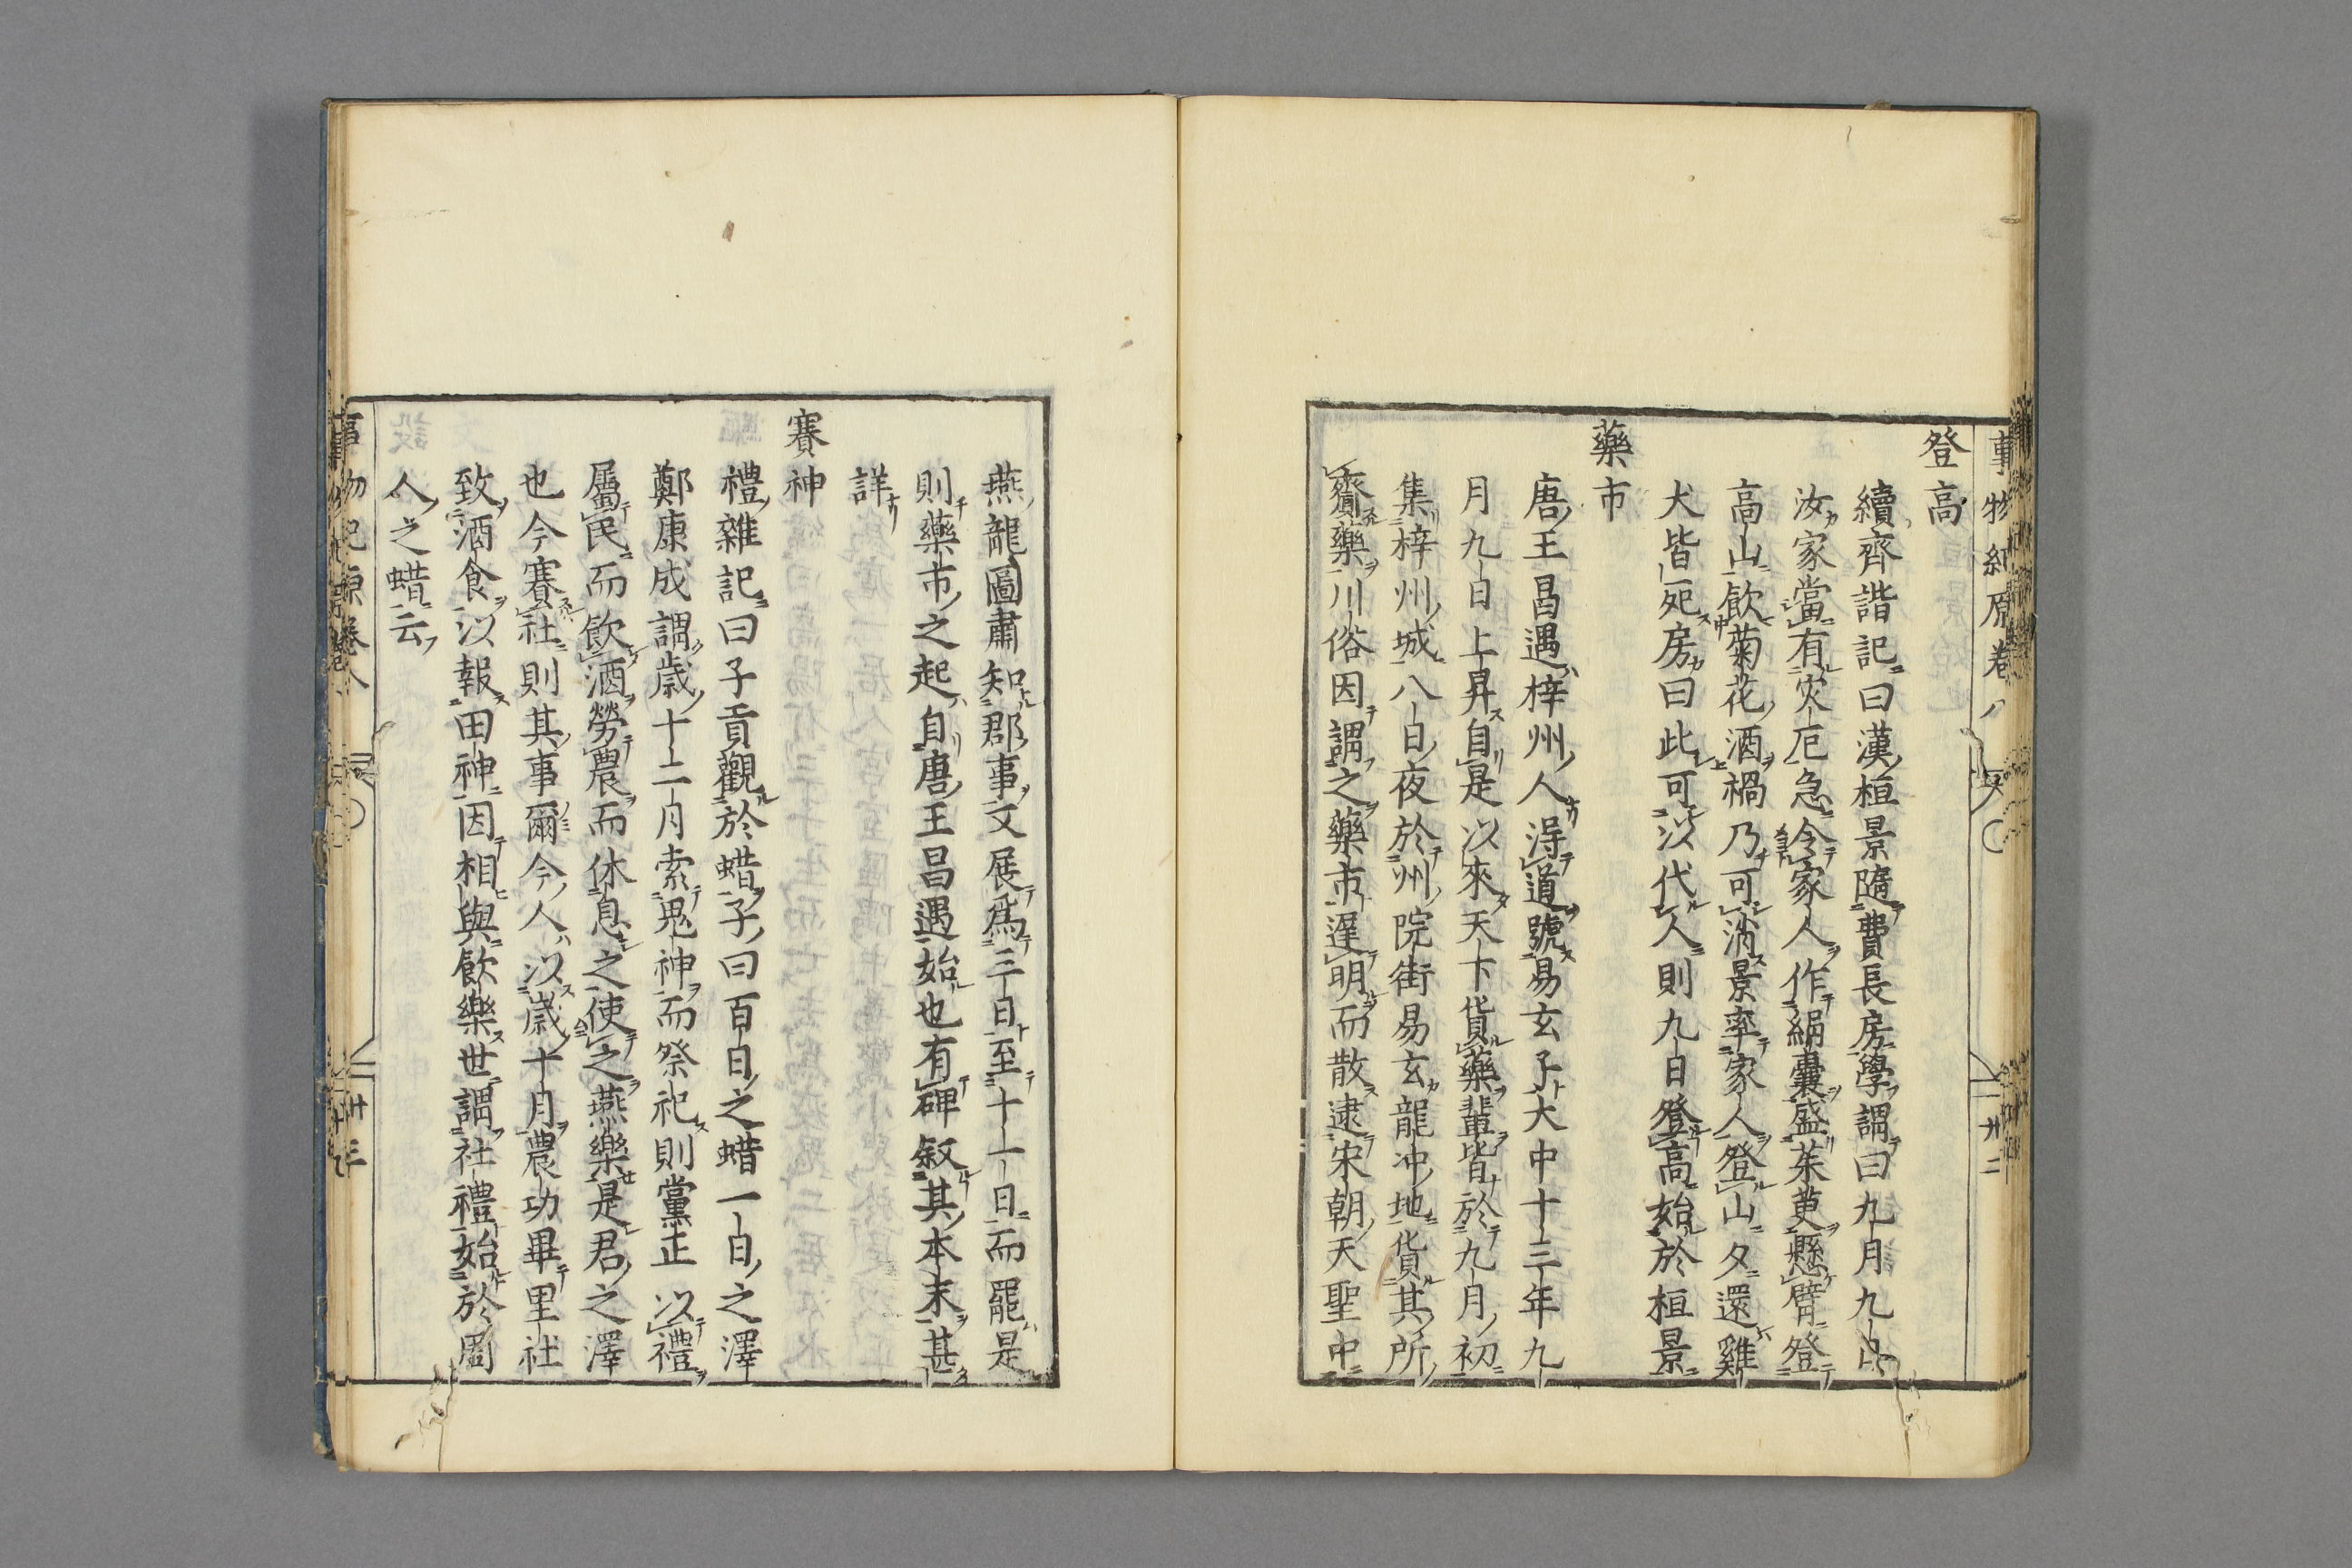 事物紀原卷八
卅二
登高
續齊諧記曰漢桓景隨費長房學謂曰九月九日
汝家當有灾厄急令家人作絹囊盛茱萸懸臂登
高山飲菊花酒禍乃可消景率家人登山夕還雞
犬皆死房曰此可以代人則九日登高始於桓景
藥市
唐王昌遇梓州人得道號易玄子大中十三年九
月九日上昇自是以來天下貨藥輩皆於九月初
集梓州城八日夜於州院街易玄龍冲地貨其所
齎藥川俗因謂之藥市遲明而散逮宋朝天聖中
燕龍圖肅知郡事文展爲三日至十一日而罷是
則藥市之起自唐王昌遇始也有碑叙其本末甚
詳
賽神
禮雜記曰子貢觀於蜡子曰百日之蜡一日之澤
鄭康成謂歲十二月索鬼神而祭祀則黨正以禮
屬民而飲酒勞農而休息之使之燕樂是君之澤
也今賽社則其事爾今人以歲十月農功畢里社
致酒食以報田神因相與飲樂世謂社禮始於周
人之蜡云